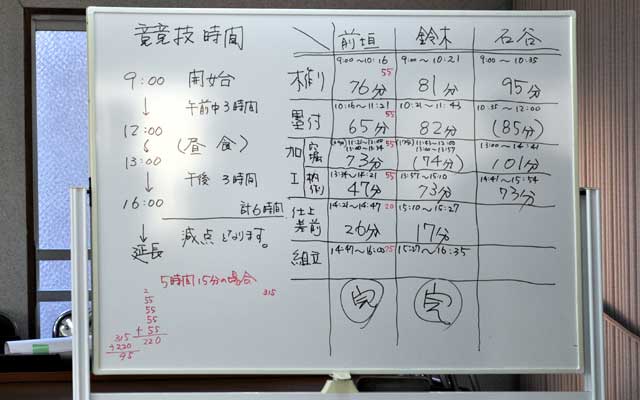 競技時間
9:00 開始
↓ 午前中3時間
12:00
↓ (昼食)
13:00
↓ 午後 3時間
16:00 計6時間
↓ 減点となります。
延長
5時間15分の場合
315
2
55
55
55
+ 55
220
315
+220
95
前垣 鈴木 石谷
9:00~10:16 9:00~10:21 9:00~10:35
木作り 55
76分 81分 95分
10:16~11:21 10:21~11:43 10:35~12:00
墨付 55
65分 82分 (85分)
加工 穴掘 11:21~12:00 55 11:43~12:00 13:00~14:41
13:00~13:34 13:00~13:57
73分 (74分) 101分
13:34~14:21 13:57~15:10 14:41~15:54
柄作り 55
47分 73分 73分
仕上 14:21~14:47 20 15:10~15:27
差前 26分 17分
組立 14:47~16:00 75 15:27~16:35
完 完